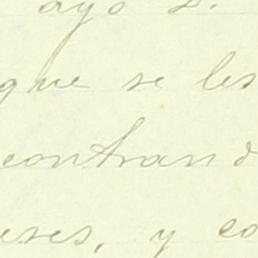 que se les
contrand
eses, y co